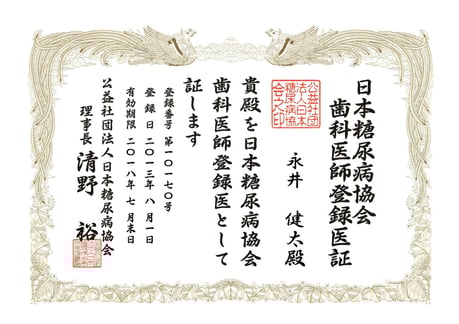 日本糖尿病協会
歯科医師登録医証
公益社団
法人日本
糖尿病協
会之印
永井 健太殿
貴殿を日本糖尿病協会
歯科医師登録医として
証します
登録番号 第一〇一七〇号
登録日 二〇一三年 八月一日
有効期限 二〇一八年 七月末日
公益社団法人日本糖尿病協会
理事長 清野 裕